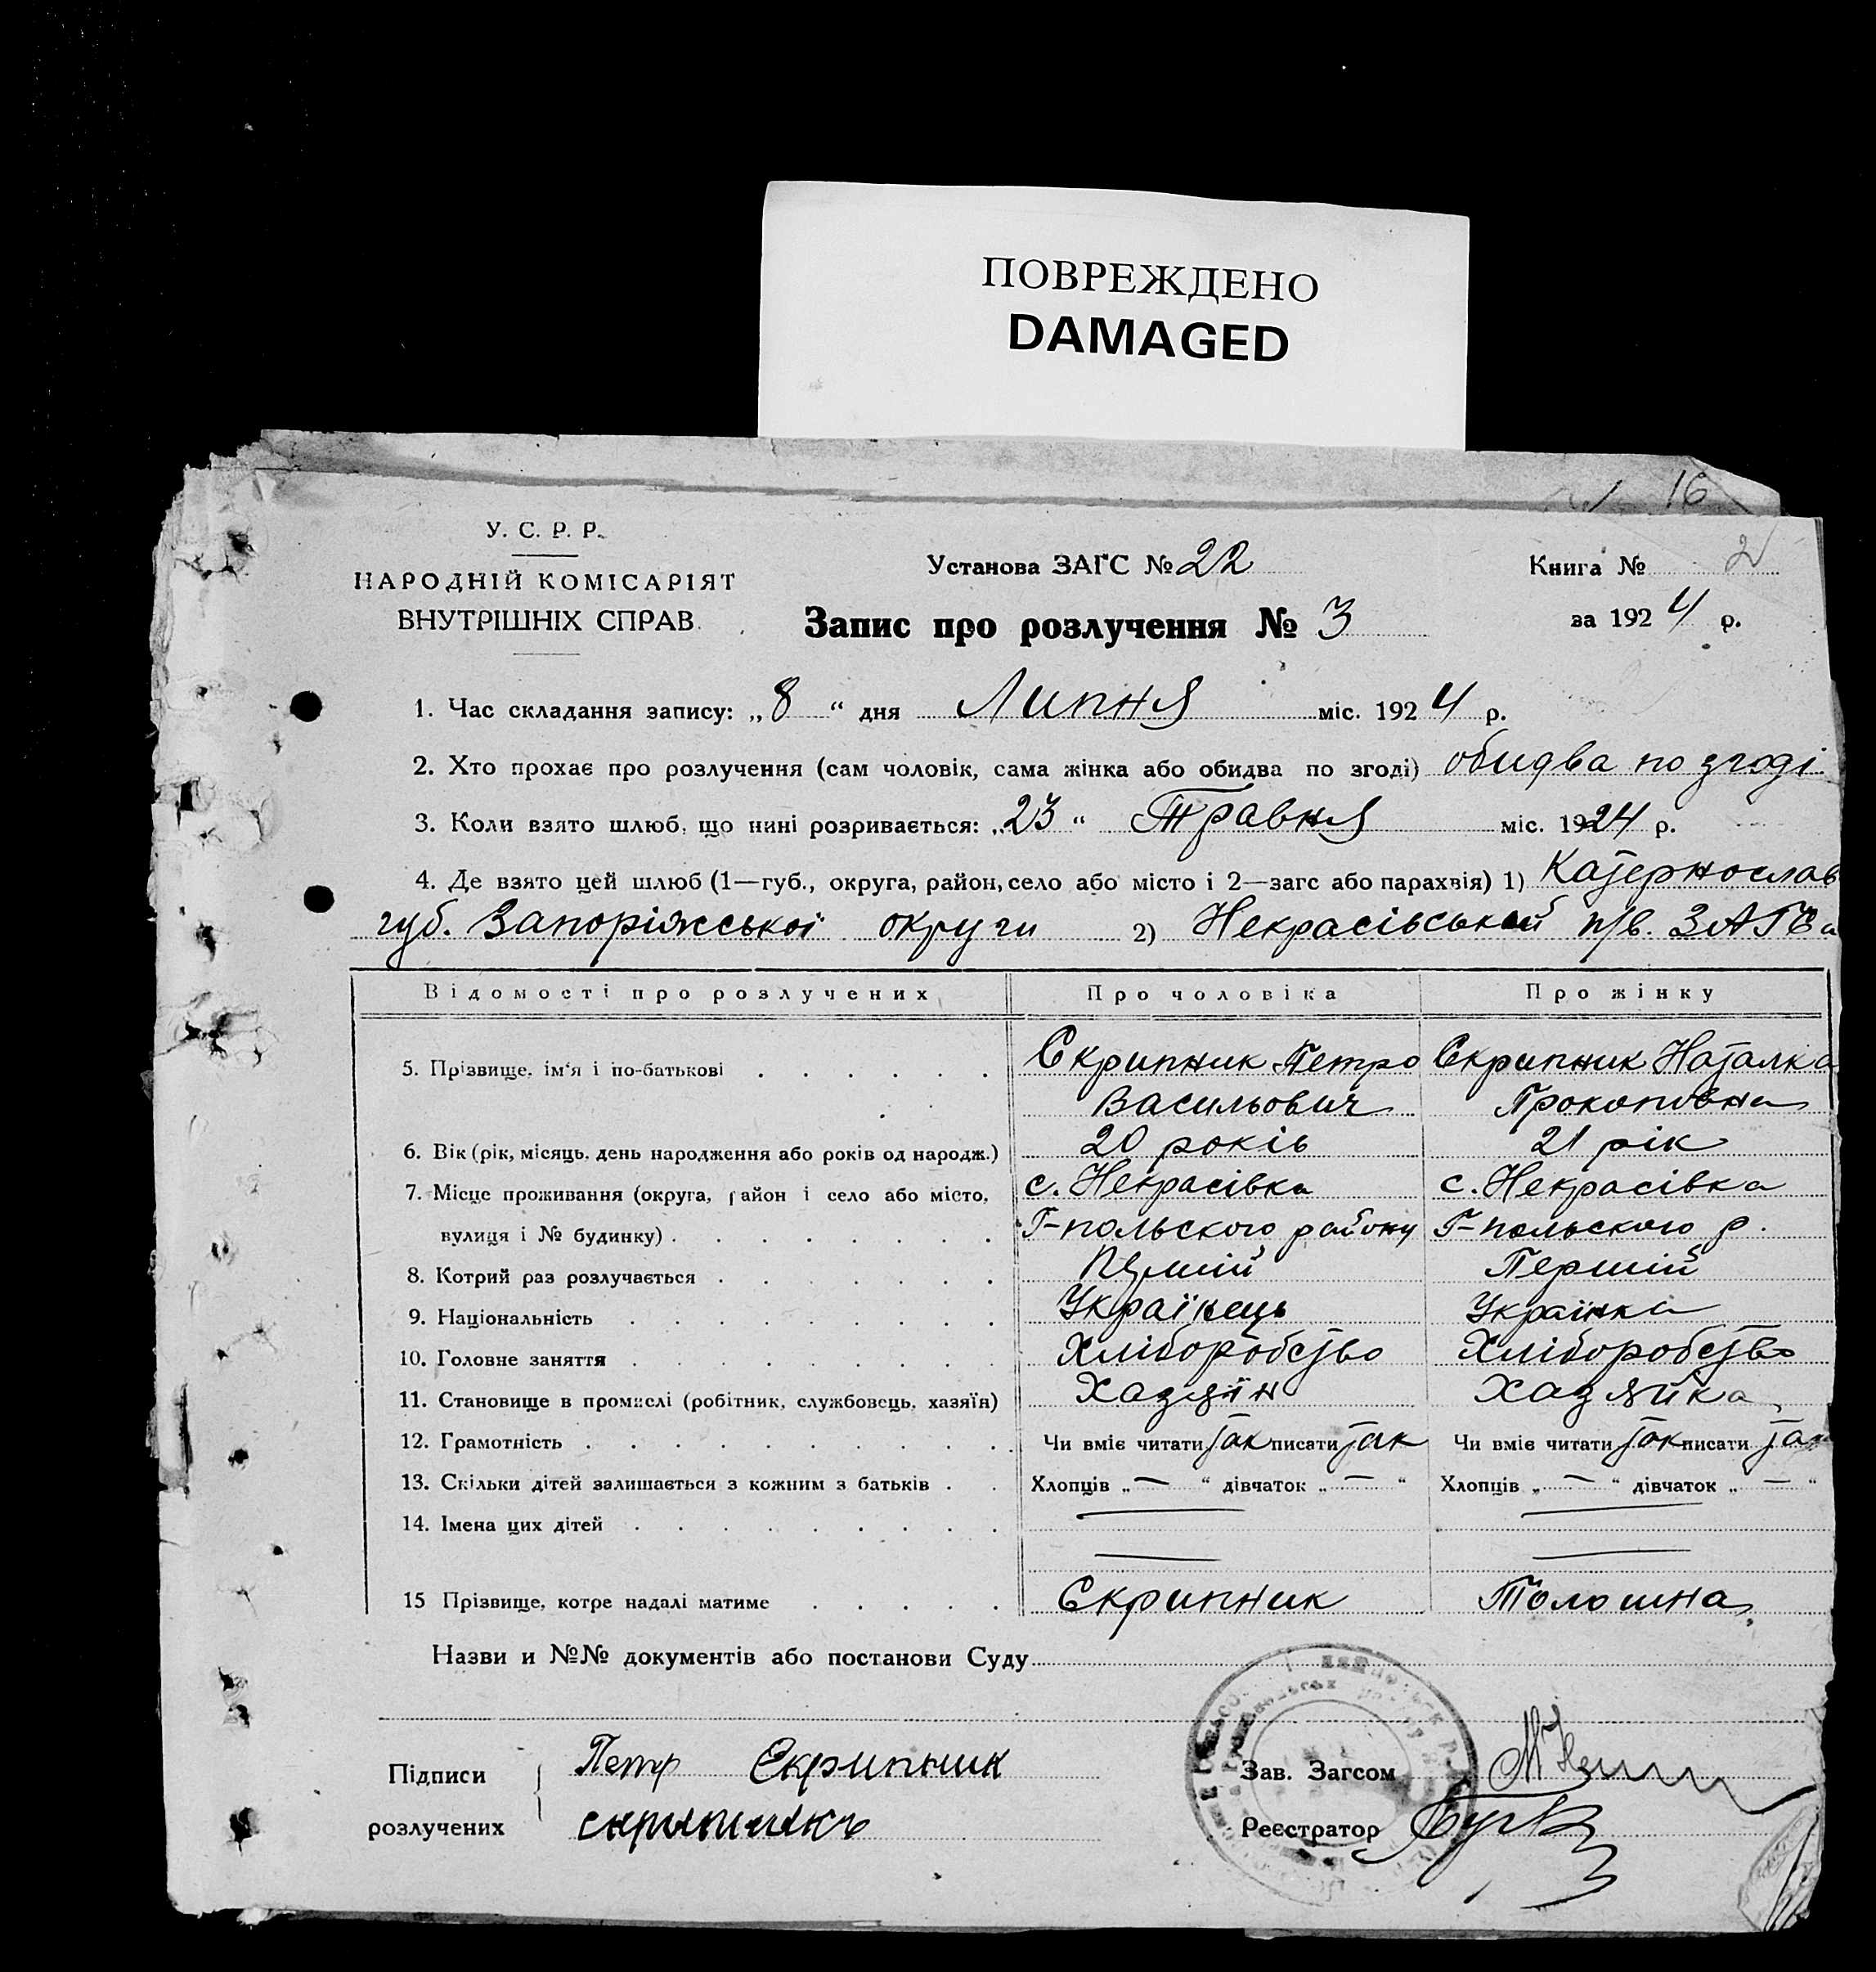 ПОВРЕЖДЕНО
DAMAGED
16
У. С. Р. Р.
НАРОДНІЙ КОМІСАРІЯТ
ВНУТРІШНІХ СПРАВ.
Установа ЗАГС № 22
Книга № 2
за 1924 р.
Запис про розлучення № 3
1. Час складання запису: „8“ дня Липня міс. 1924 р.
2. Хто прохає про розлучення (сам чоловік, сама жінка або обидва по згоді) обидва по згоді
3. Коли взято шлюб, що нині розривається: „23“ Травня міс. 1924 р.
4. Де взято цей шлюб (1—губ., округа, район, село або місто і 2—загс або парахвія) 1) Катернослав
губ. Запоріжської округи 2) Некрасівський п/в. ЗАГСа
Відомості про розлучених Про чоловіка Про жінку
5. Прізвище, ім'я і по-батькові . . . . . . Скрипник Петро Скрипник Наталка
Васильович Прокоповна
6. Вік (рік, місяць, день народження або років од народж.) 20 років 21 рік
7. Місце проживання (округа, район і село або місто, с. Некрасівка с. Некрасівка
вулиця і № будинку) . . . . . . . . Г-польского району Г-польского р.
8. Котрий раз розлучається . . . . . . . Перший Перший
9. Національність . . . . . . . . . Українець Українка
10. Головне заняття . . . . . . . . . Хліборобство Хліборобство
11. Становище в промислі (робітник, службовець, хазяїн) Хазяїн Хазяйка
12. Грамотність . . . . . . . . . . Чи вміє читати так писати так Чи вміє читати так писати так
13. Скільки дітей залишається з кожним з батьків . . Хлопців „—“ дівчаток „—“ Хлопців „—“ дівчаток „—“
14. Імена цих дітей . . . . . . . . . — —
— —
15 Прізвище, котре надалі матиме . . . . . Скрипник Толошна
Назви и №№ документів або постанови Суду
Підписи Петр Скрипник Зав. Загсом
розлучених скрипникъ Реєстратор